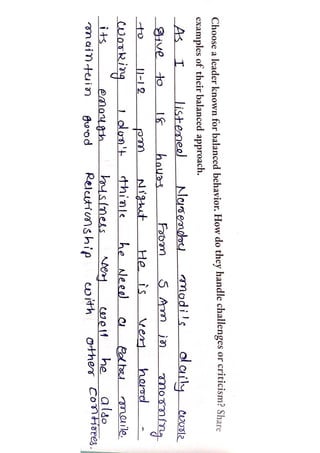 Choose a leader known for balanced behavior. How do they handle challenges or criticism? Share
examples of their balanced approach.
As I listened Narendra modi's daily work
give to 18 hours From 5 Am in morning
to 11-12 pm Night He is very hard -
working I don't think he Need a Extra
its enough business very well he also
maintain good Relationship with other Contires.